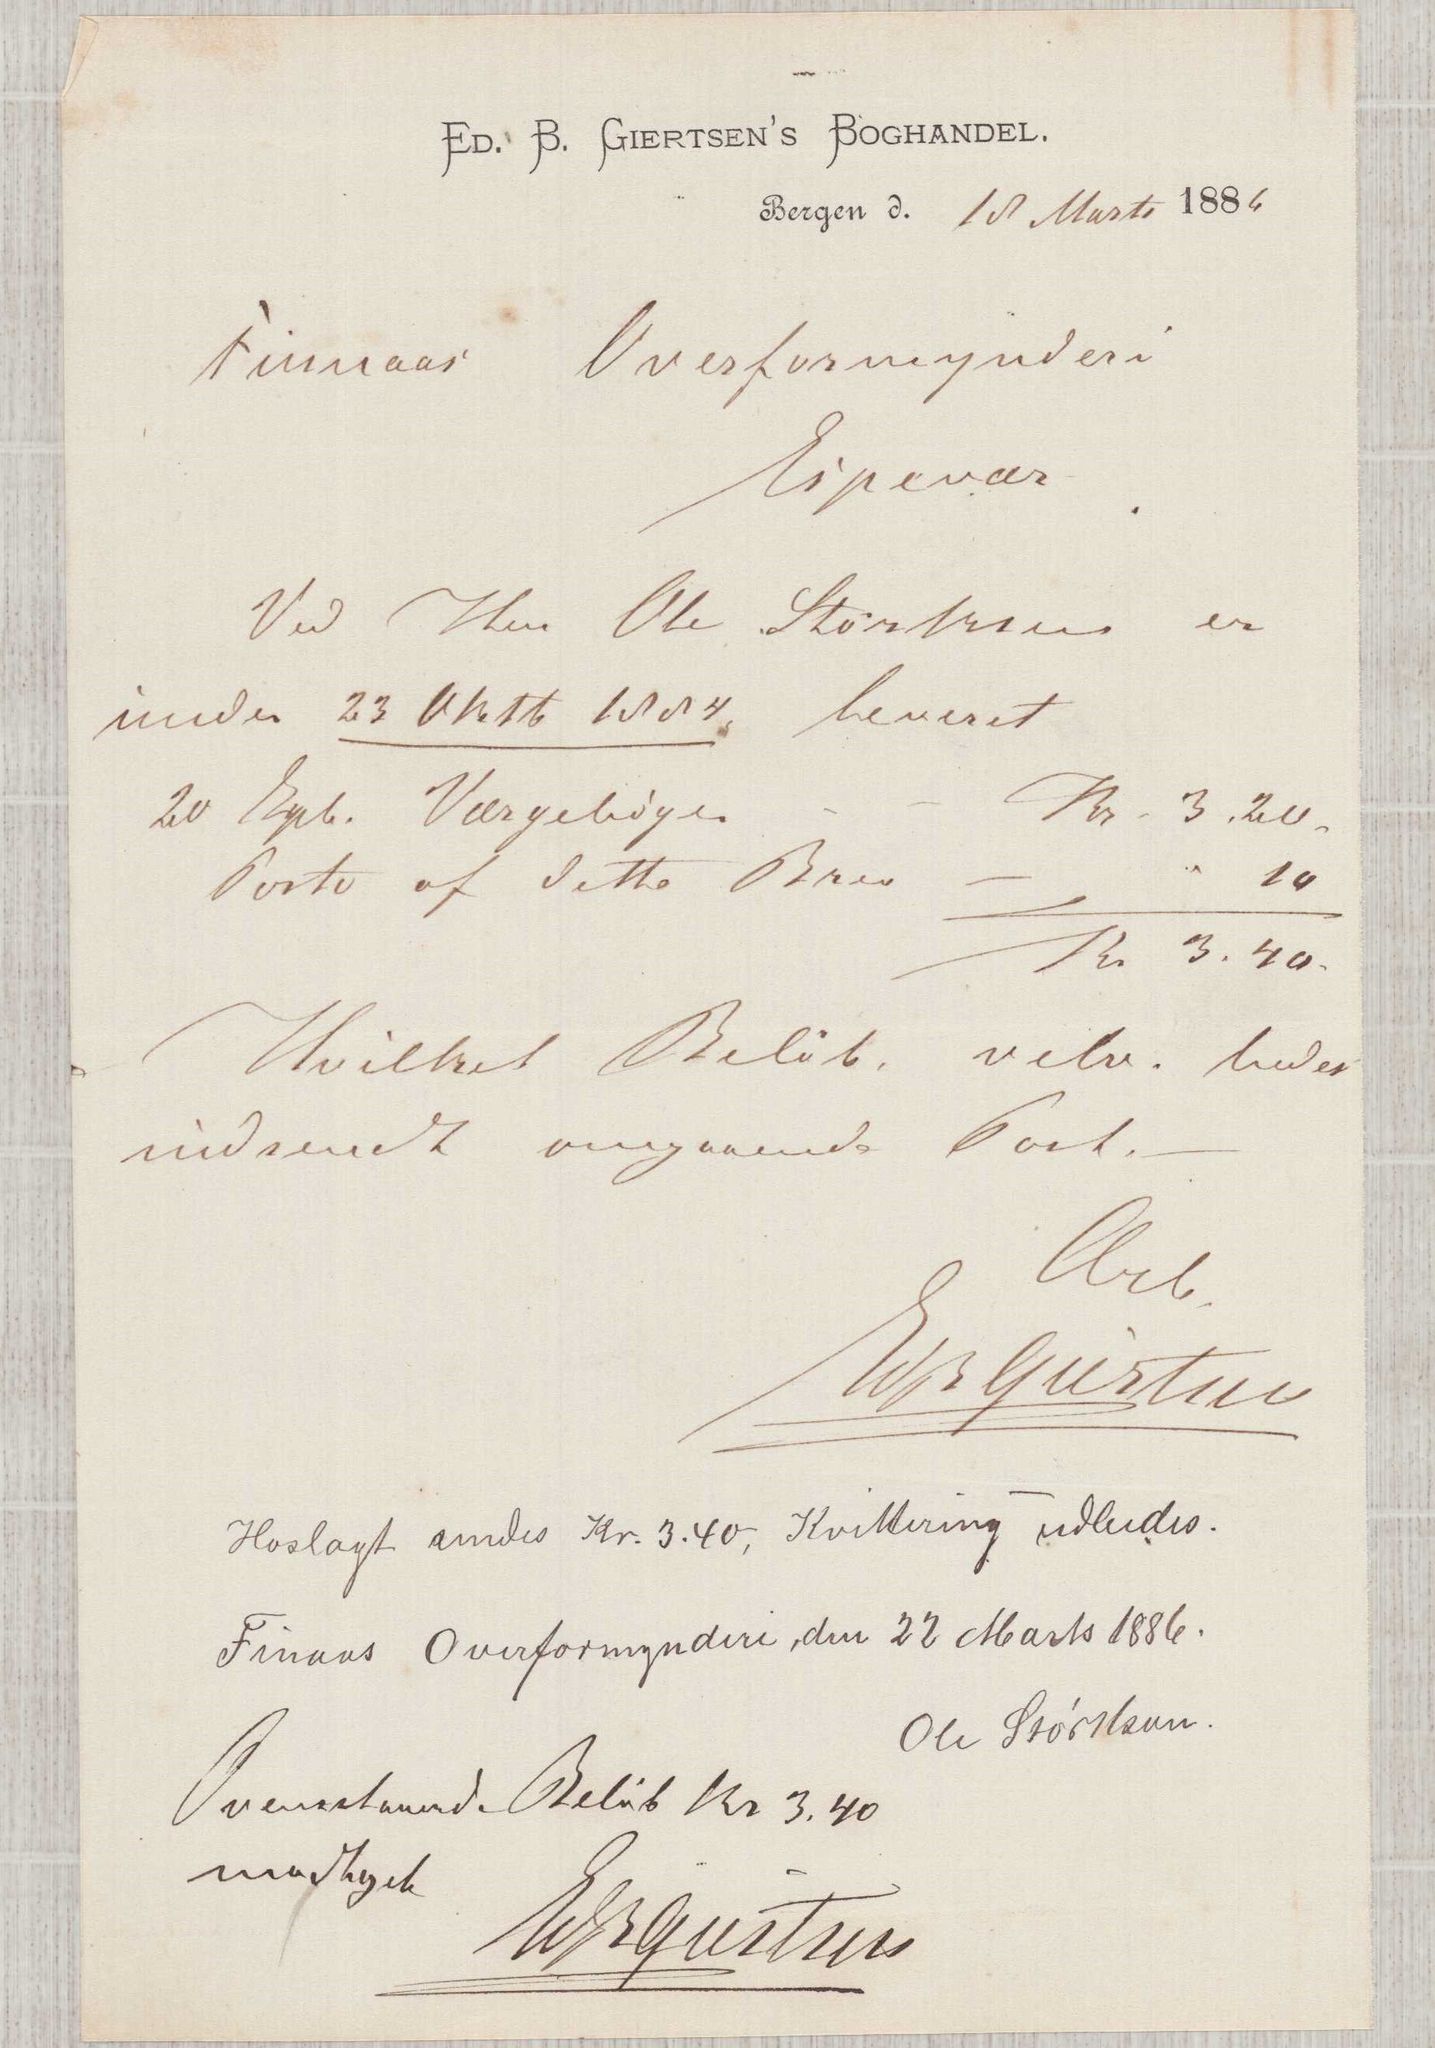 ED. B. GIERTSEN'S BOGHANDEL.
Bergen d. 18 Marts 1886
Finnaas Overformynderi
Espevær
Ved Herr Ole Størksens er
under 23 Oktb 1884 leveret
20 Expl. Værgebøger - - Kr. 3.20.
Porto af dette Brev - " 10
Kr 3.40.
Hvilket Beløb. velv. bedes
indsendt omgaaende Post. —
Arb.
Ed B Giertsen
Hoslagt sendes Kr. 3.40, Kvittering udbedes.
Finaas Overformynderi, den 22 Marts 1886.
Ole Størkson.
Ovenstaaende Beløb Kr 3.40
modtaget
Ed B Giertsen